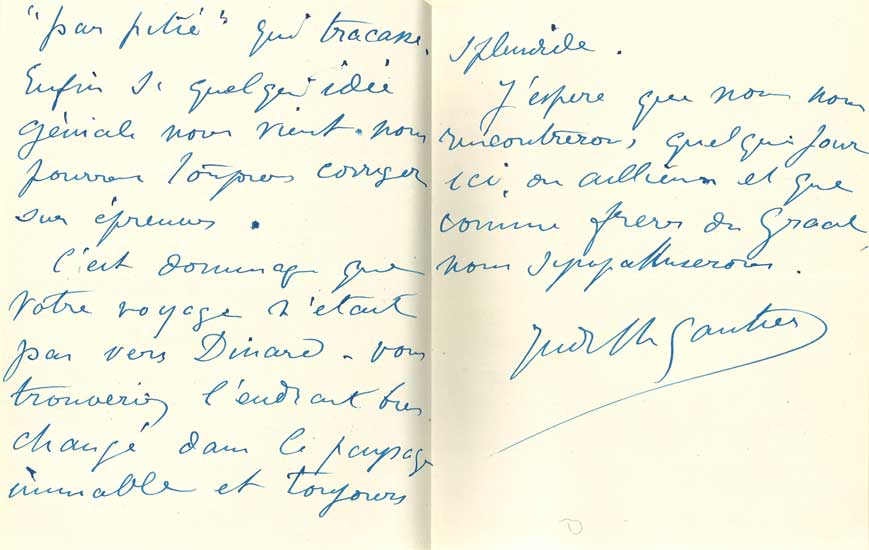 "par pitié" qui tracasse.
Enfin si quelqu'idée
géniale nous vient. nous
pourrons toujours corriger
sur épreuves.
C'est dommage que
votre voyage n'était
pas vers Dinard - vous
trouveriez l'endroit très
changé dans le paysage
immuable et toujours
splendide.
J'espère que nous nous
rencontrerons, quelque jour
ici, ou ailleurs et que
comme frères du Graal,
nous sympathiserons.
Judith Gautier